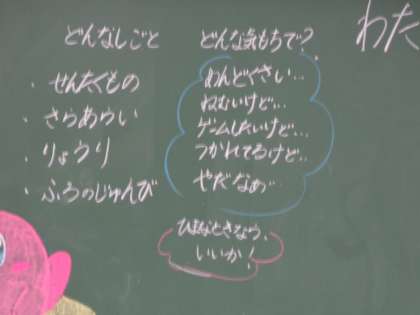 どんなしごと
・せんたくもの
・さらあらい
・りょうり
・ふろのじゅんび
どんな気もちで？
めんどくさい…
ねむいけど…
ゲームしたいけど…
つかれてるけど…
やだなぁ…
ひまなときなら、
いいか！
わた